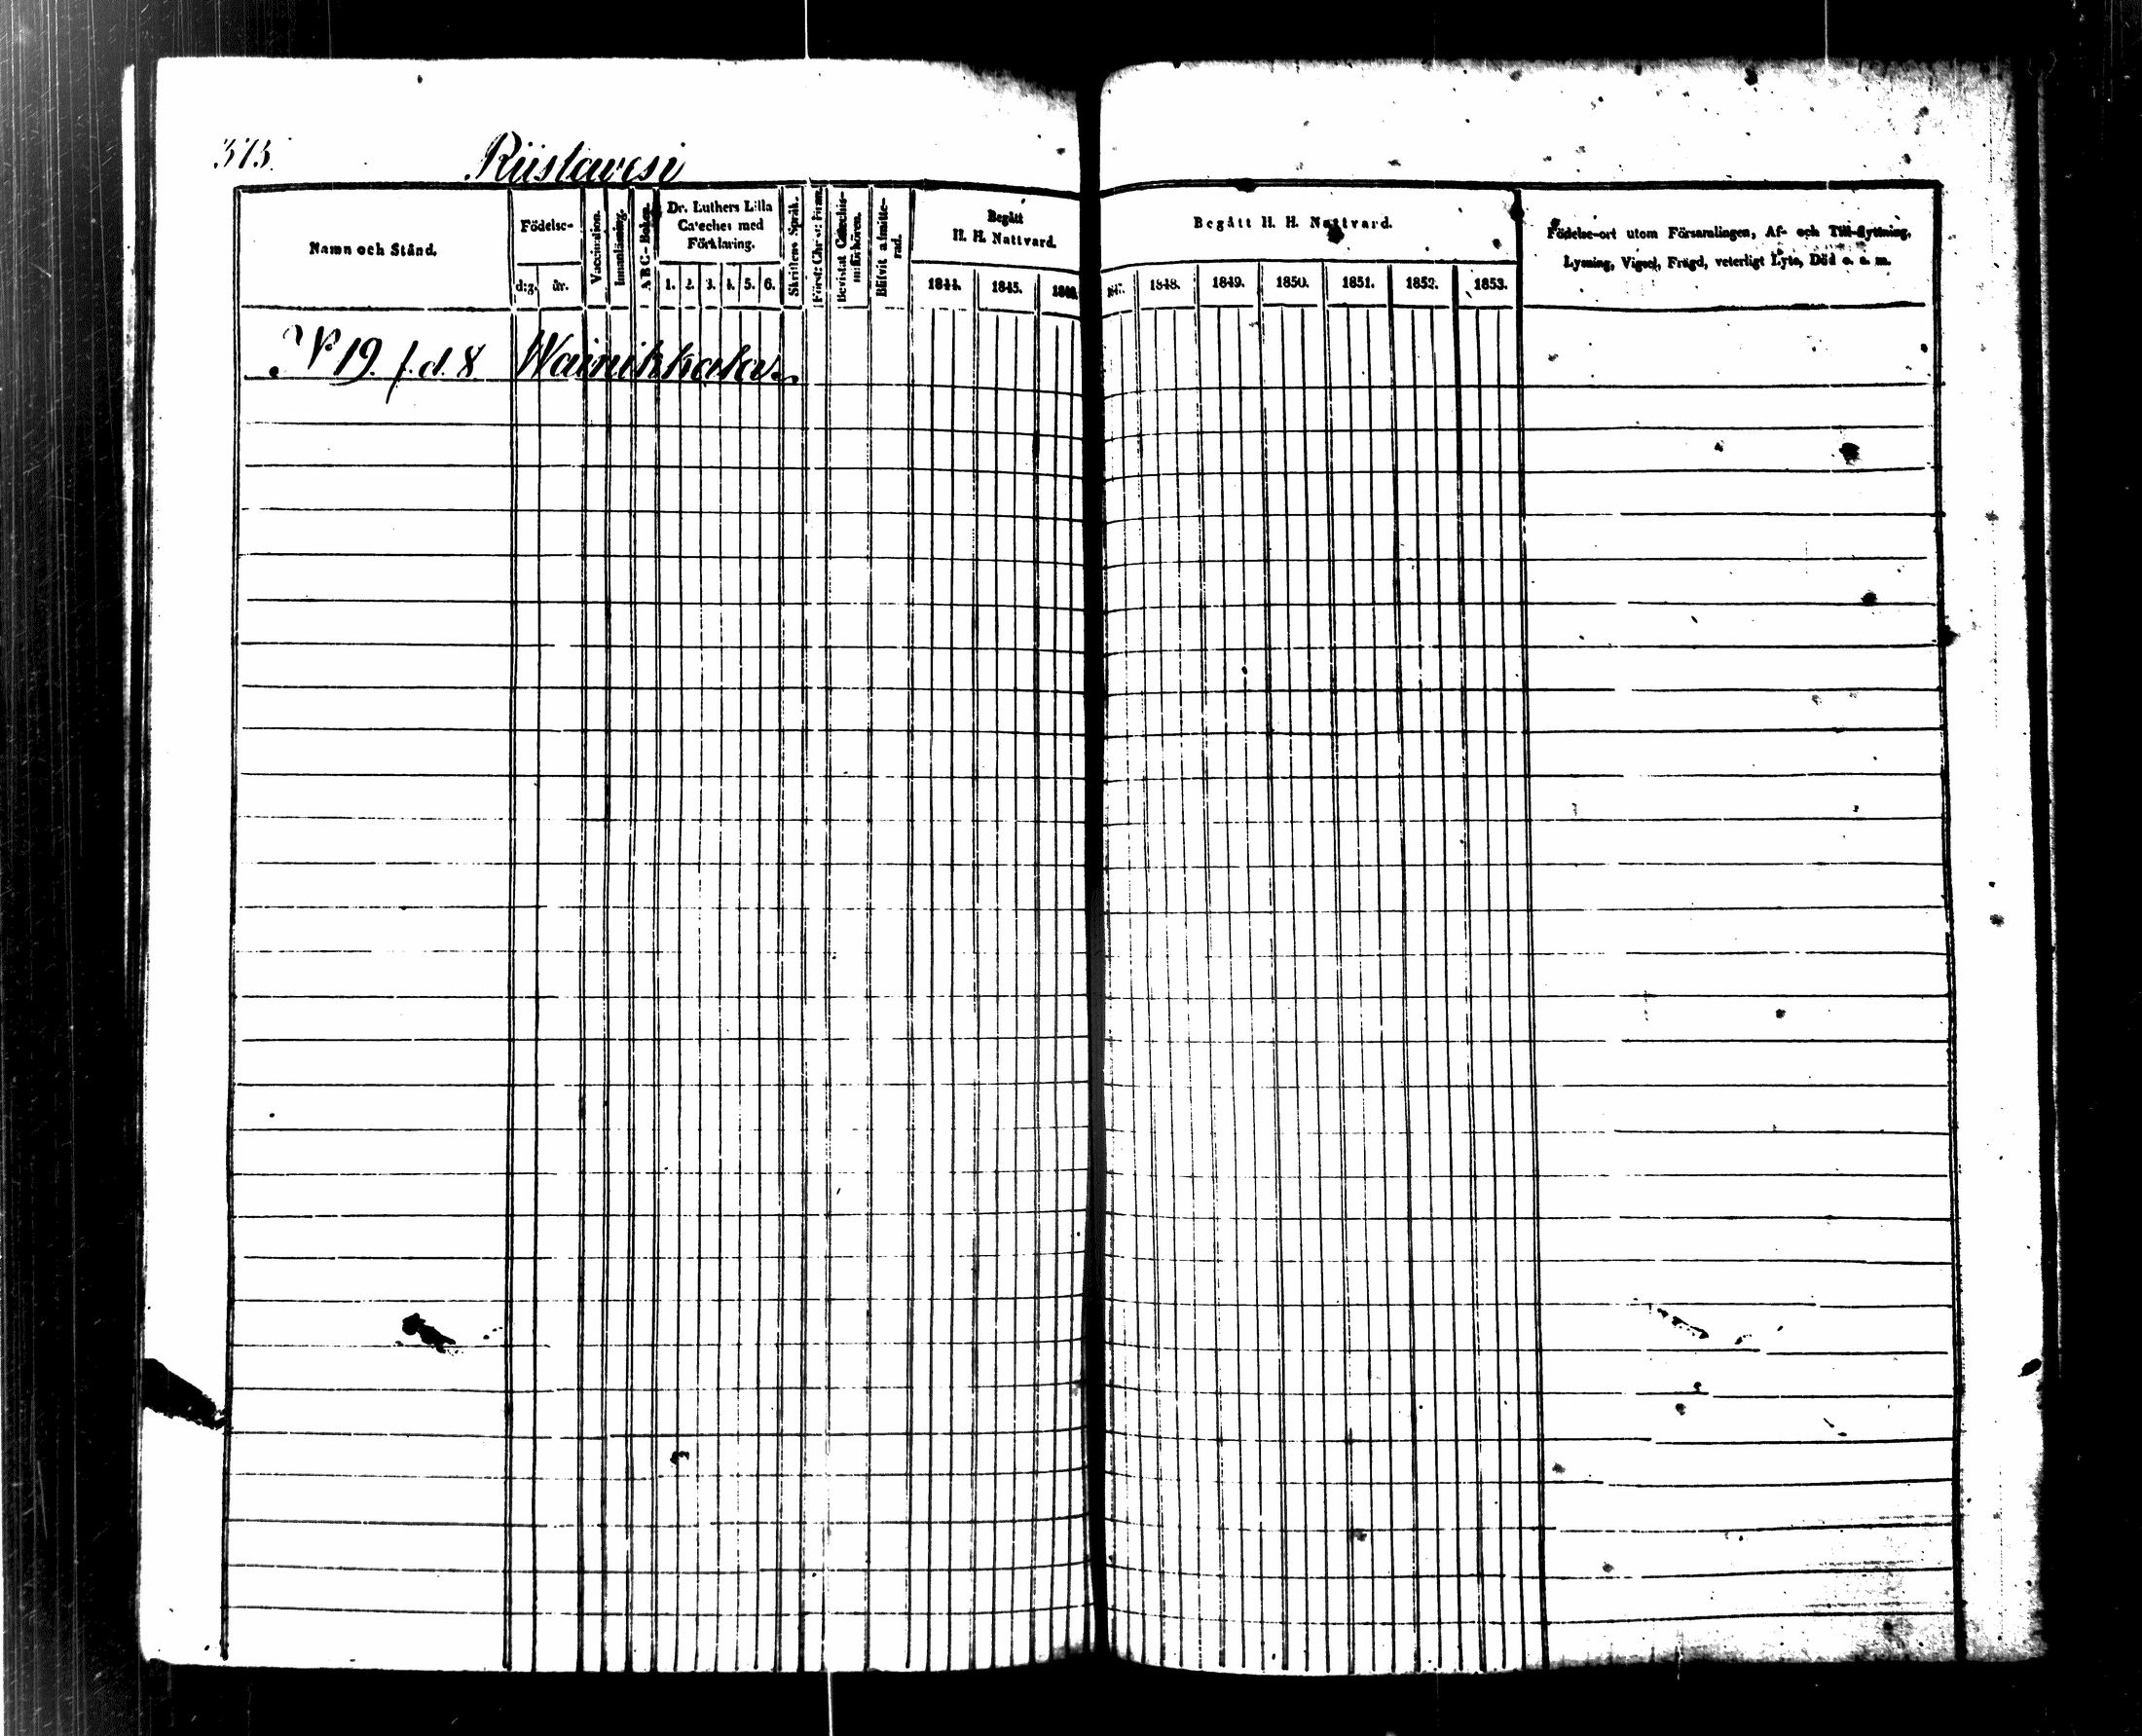 373.
Riistavesi
Namn och Stånd.
Födelse-
dag.
år.
Vaccination.
Innanläsning.
A B C-Boken.
Dr. Luthers Lilla
Cateches med
Förklaring.
1. 2. 3. 4. 5. 6.
Skriftens Språk.
Bevistat Catechis-
miförhören.
Blifvit admitte-
rad.
Begått
H. H. Nattvard.
1844. 1845. 1846.
Begått H. H. Nattvard.
1847. 1848. 1849. 1850. 1851. 1852. 1853.
Födelse-ort utom Församlingen, Af- och Till-flyttning,
Lysning, Vigsel, Frägd, veterligt Lyte, Död o. a. m.
N 19. f. d. 8 Wainikkala.